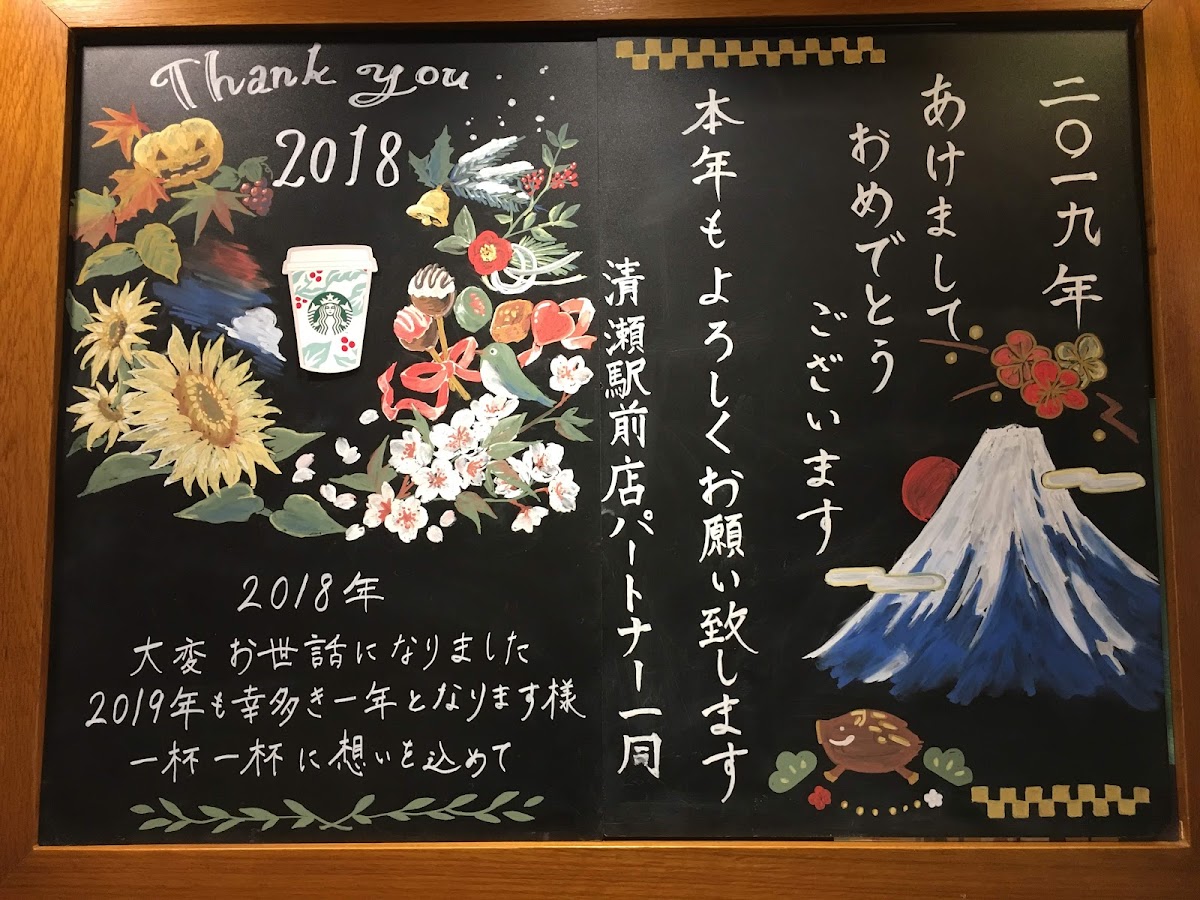 Thank you
2018
2018年
大変 お世話になりました
2019年も幸多き一年となります様
一杯一杯に想いを込めて
二〇一九年
あけまして
おめでとう
ございます
本年もよろしくお願い致します
清瀬駅前店パートナー一同